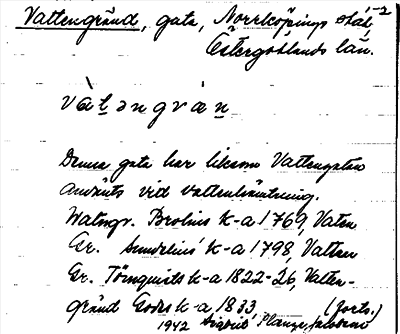 Vattengränd, gata, Norrköpings stad, 1-2
Östergötlands län.
vàtəngràn
Denna gata har liksom Vattengatan
använts vid vattenhämtning.
Watngr. Brolins k-a 1769, Vaten
Gr. Sundelius' k-a 1798, Vatten
Gr. Törnquists k-a 1822-26, Vatten-
gränd Godes k-a 1833
(forts.)
1942 Sigbrit Plænge Jacobson